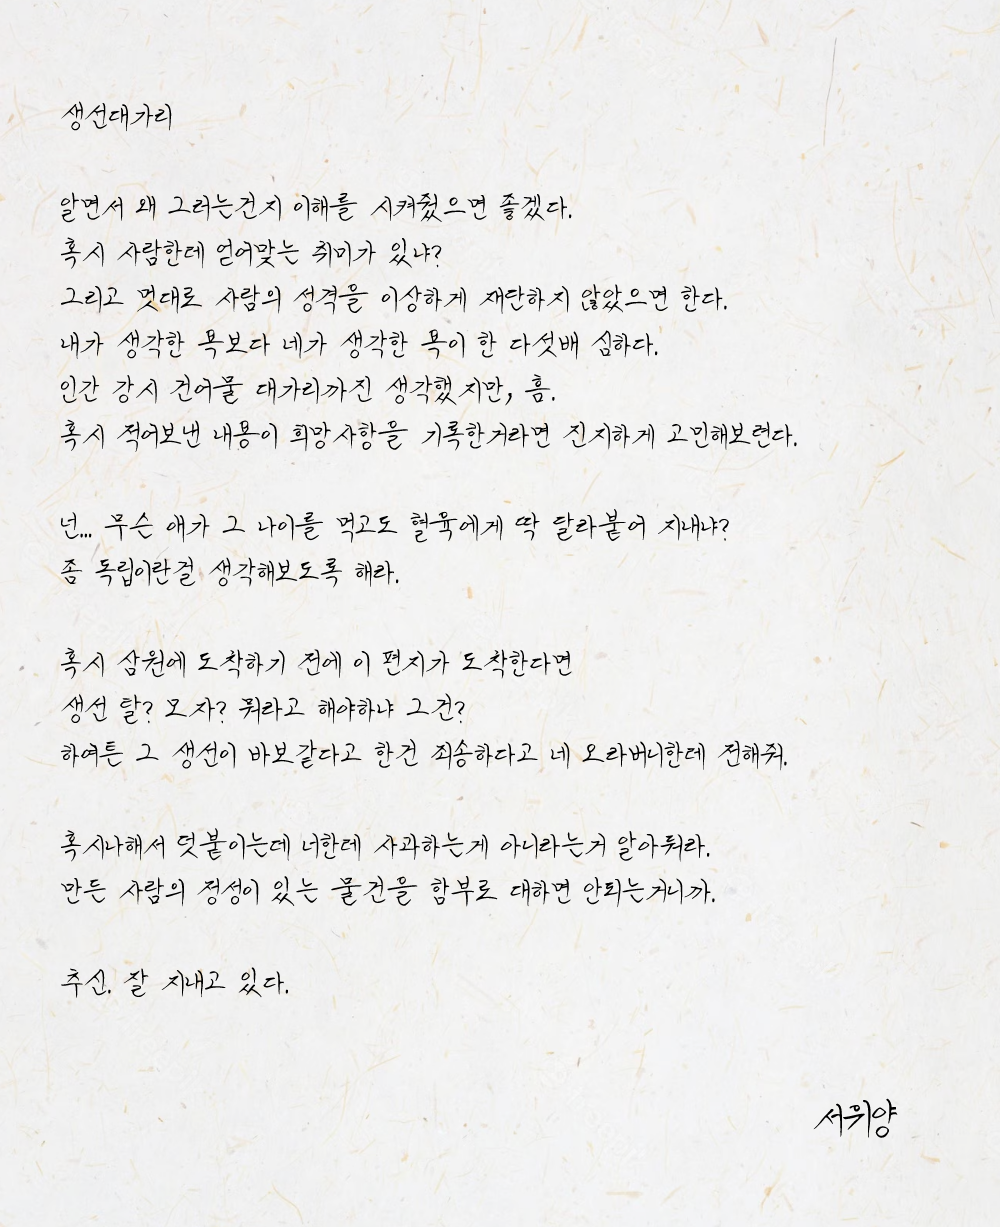 생선대가리
알면서 왜 그러는건지 이해를 시켜줬으면 좋겠다.
혹시 사람한테 얻어맞는 취미가 있냐?
그리고 멋대로 사람의 성격을 이상하게 재단하지 않았으면 한다.
내가 생각한 욕보다 네가 생각한 욕이 한 다섯배 심하다.
인간 강시 건어물 대가리까진 생각했지만, 흠.
혹시 적어보낸 내용이 희망사항을 기록한거라면 진지하게 고민해보련다.
넌... 무슨 애가 그 나이를 먹고도 혈육에게 딱 달라붙어 지내냐?
좀 독립이란걸 생각해보도록 해라.
혹시 삼원에 도착하기 전에 이 편지가 도착한다면
생선 탈? 모자? 뭐라고 해야하냐 그건?
하여튼 그 생선이 바보같다고 한건 죄송하다고 네 오라버니한테 전해줘.
혹시나해서 덧붙이는데 너한테 사과하는게 아니라는거 알아둬라.
만든 사람의 정성이 있는 물건을 함부로 대하면 안되는거니까.
추신. 잘 지내고 있다.
서위양